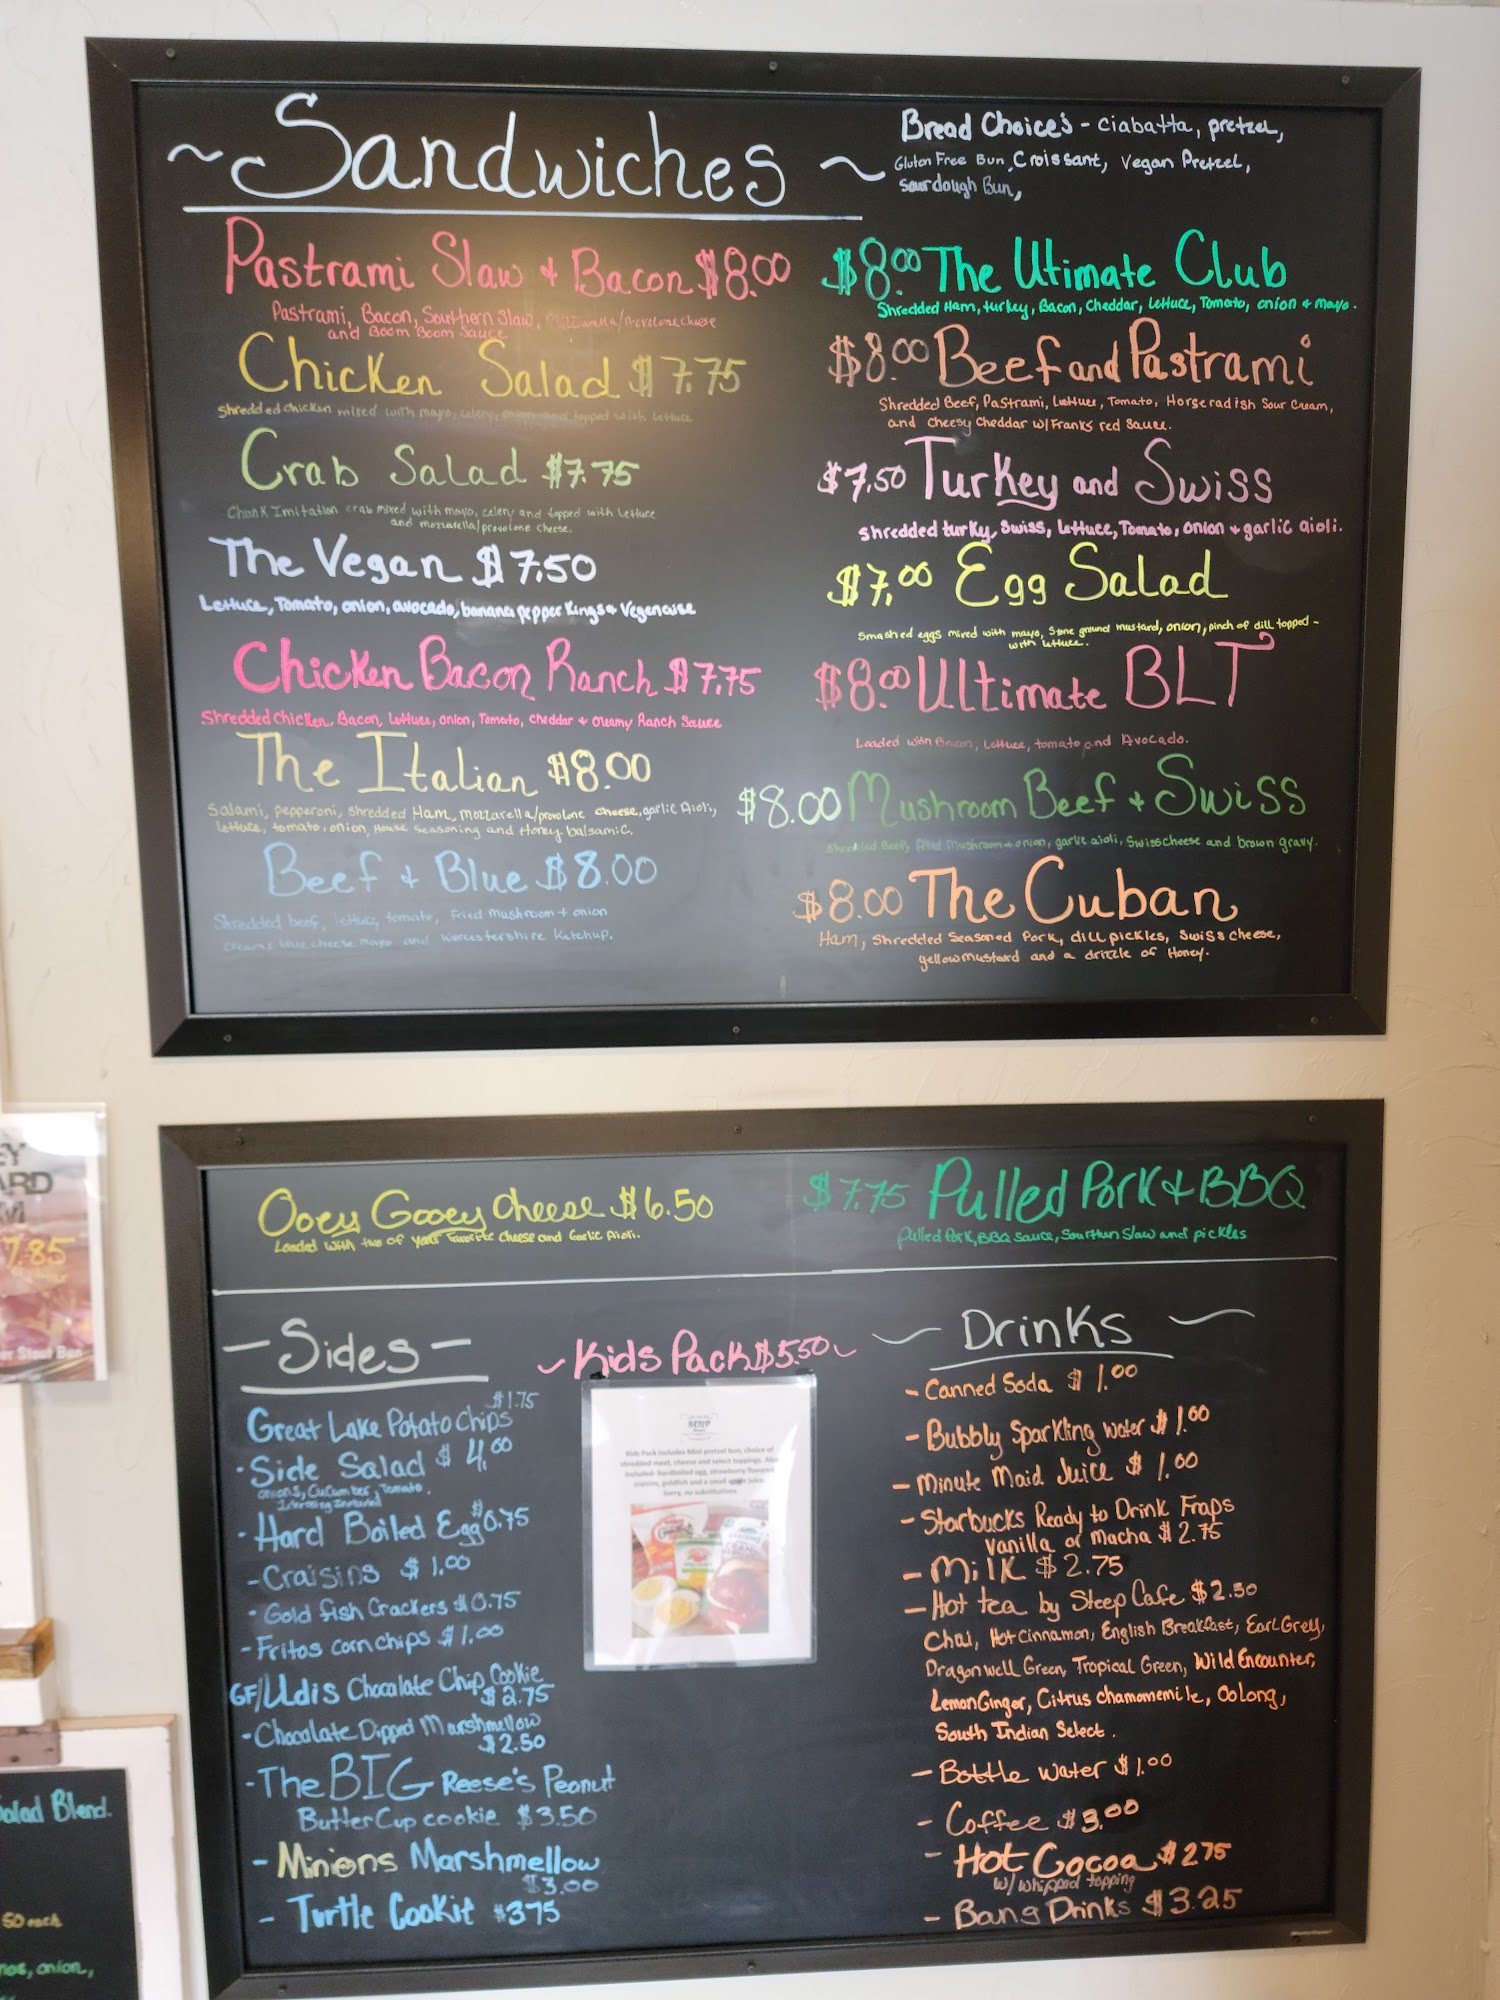 ~ Sandwiches ~
Bread Choice's - Ciabatta, pretzel,
Gluten Free Bun, Croissant, Vegan Pretzel,
Sourdough Bun,
Pastrami Slaw + Bacon $8.00
Pastrami, Bacon, Southern Slaw, Mozzarella/Provolone Cheese
and Boom Boom Sauce
Chicken Salad $7.75
Shredded chicken mixed with mayo, celery, onion and topped with lettuce
Crab Salad $7.75
Chunk Imitation crab mixed with mayo, celery and topped with lettuce
and mozzarella/provolone cheese.
The Vegan $7.50
Lettuce, Tomato, onion, avocado, banana pepper rings + Vegenaise
Chicken Bacon Ranch $7.75
Shredded Chicken, Bacon, Lettuce, onion, Tomato, cheddar + creamy Ranch Sauce
The Italian $8.00
Salami, pepperoni, shredded Ham, mozzarella/provolone cheese, garlic Aioli,
lettuce, tomato, onion, House Seasoning and Honey balsamic.
Beef + Blue $8.00
Shredded beef, lettuce, tomato, Fried mushroom + onion
creamy blue cheese mayo and Worcestershire Ketchup.
$8.00 The Utimate Club
Shredded Ham, turkey, Bacon, Cheddar, Lettuce, Tomato, onion + mayo.
$8.00 Beef and Pastrami
Shredded Beef, Pastrami, Lettuce, Tomato, Horseradish Sour Cream,
and Cheesy Cheddar w/Franks red sauce.
$7.50 Turkey and Swiss
shredded turkey, Swiss, Lettuce, Tomato, onion + garlic aioli.
$7.00 Egg Salad
Smashed eggs mixed with mayo, Stone ground mustard, onion, pinch of dill topped -
with lettuce.
$8.00 Ultimate BLT
Loaded with Bacon, Lettuce, tomato and Avocado.
$8.00 Mushroom Beef + Swiss
Shredded Beef, fried Mushroom + onion, garlic aioli, Swiss cheese and brown gravy.
$8.00 The Cuban
Ham, Shredded Seasoned Pork, dill pickles, Swiss cheese,
yellow mustard and a drizzle of Honey.
Ooey Gooey Cheese $6.50
Loaded with two of your favorite cheese and Garlic Aioli.
$7.75 Pulled Pork + BBQ
Pulled Pork, BBQ Sauce, Southun Slaw and pickles
- Sides -
$1.75
Great Lake Potato Chips
- Side Salad $4.00
onions, Cucumber, Tomato.
- Hard Boiled Egg $0.75
- Craisins $1.00
- Gold fish Crackers $0.75
- Fritos corn chips $1.00
GF/Udis Chocolate Chip Cookie
$2.75
- Chocolate Dipped Marshmellow
$2.50
- The BIG Reese's Peanut
Butter Cup cookie $3.50
- Minions Marshmellow
$3.00
- Turtle Cookie $3.75
~ Kids Pack $5.50 ~
SOUP
Kids Pack includes Mini pretzel bun, choice of
shredded meat, cheese and select toppings. Also
included- hardboiled egg, strawberry flavored
craisins, goldfish and a small apple juice.
Sorry, no substitutions
~ Drinks ~
- Canned Soda $1.00
- Bubbly Sparkling water $1.00
- Minute Maid Juice $1.00
- Starbucks Ready to Drink Fraps
vanilla or Macha $2.75
- Milk $2.75
- Hot tea by Steep Cafe $2.50
Chai, Hot Cinnamon, English Breakfast, Earl Grey,
Dragonwell Green, Tropical Green, Wild Encounter,
Lemon Ginger, Citrus chamomemile, Oolong,
South Indian Select.
- Bottle water $1.00
- Coffee $3.00
- Hot Cocoa $2.75
w/ whipped topping
- Bang Drinks $3.25
7.85
er Stout Bun
Salad Blend.
50 each
onion,